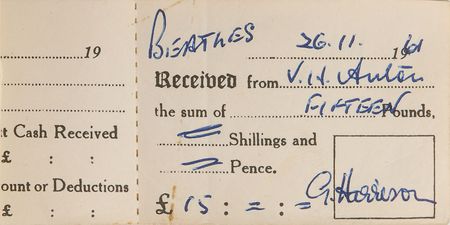 19
t Cash Received
£ : :
ount or Deductions
£ : :
BEATLES 26.11. 1961
Received from V.H. Anton
the sum of FIFTEEN Pounds,
= Shillings and
= Pence.
£ 15 : = : = G. Harrison